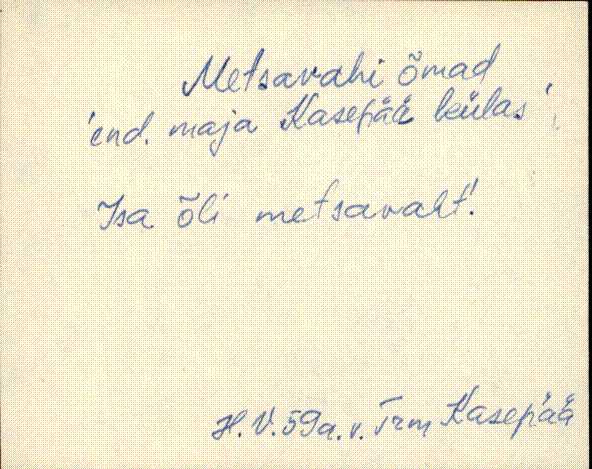 Metsavahi õmad
'end. maja Kasepää külas'.
Isa õli metsavaht.
H. V. 59 a. v. Trm Kasep'ää